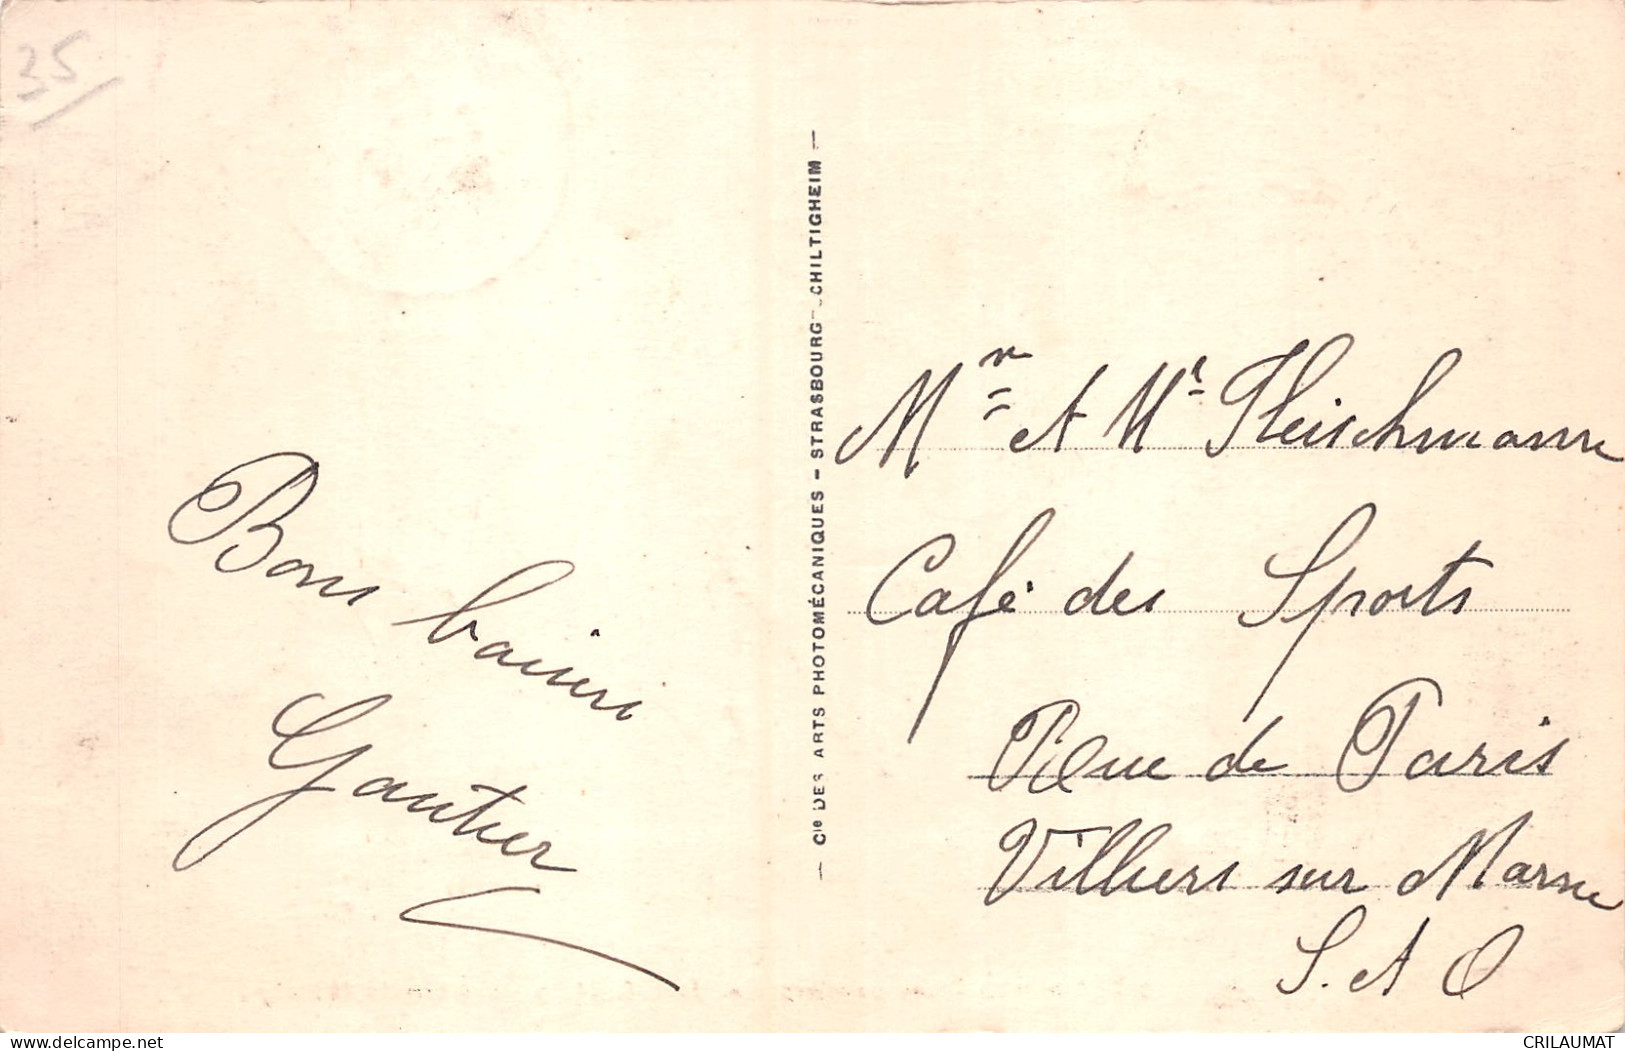 35
Bons baisers
Gautier
— Cie DES ARTS PHOTOMÉCANIQUES - STRASBOURG - CHILTIGHEIM —
Mr et Me Fleischmann
Café des Sports
Rue de Paris
Villiers sur Marne
S. et O
delcampe.net
CRILAUMAT